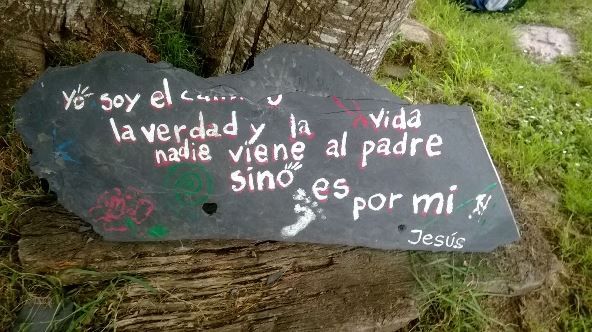 Yo soy el
la verdad y la vida
nadie viene al padre
sino es por mi
Jesús